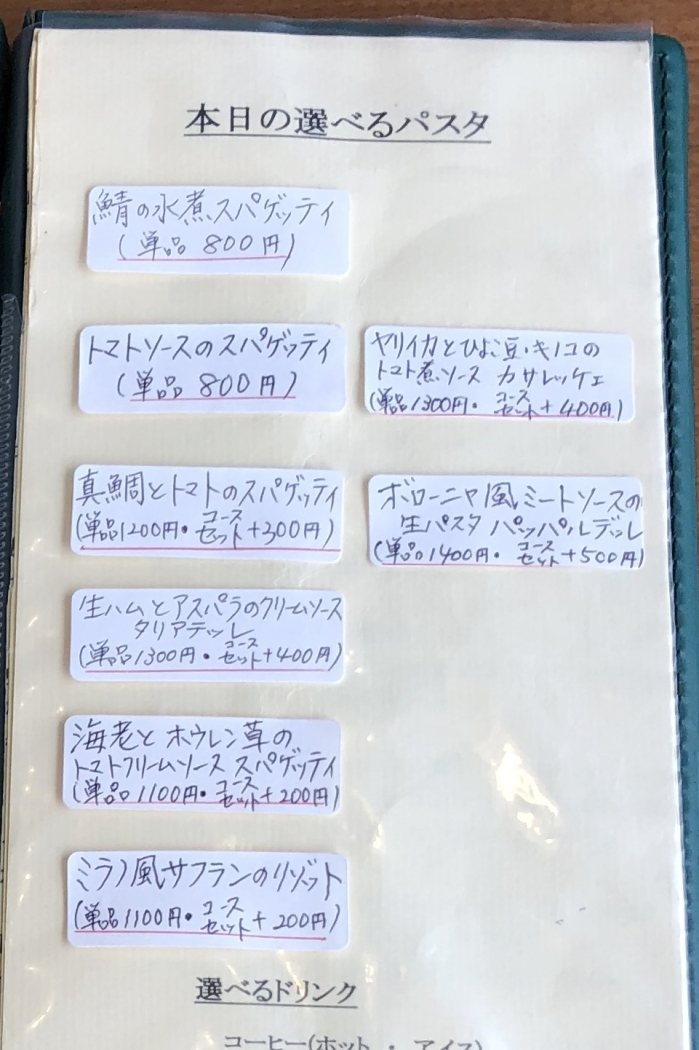 本日の選べるパスタ
鯖の水煮スパゲッティ
(単品 800円)
トマトソースのスパゲッティ
(単品 800円)
真鯛とトマトのスパゲッティ
(単品1200円・コースセット+300円)
生ハムとアスパラのクリームソース
タリアテッレ
(単品1300円・コースセット+400円)
海老とホウレン草の
トマトクリームソース スパゲッティ
(単品1100円・コースセット+200円)
ミラノ風サフランのリゾット
(単品1100円・コースセット+200円)
ヤリイカとひよこ豆・キノコの
トマト煮ソース カサレッチェ
(単品1300円・コースセット+400円)
ボローニャ風ミートソースの
生パスタ パッパルデッレ
(単品1400円・コースセット+500円)
選べるドリンク
コーヒー(ホット ・ アイス)